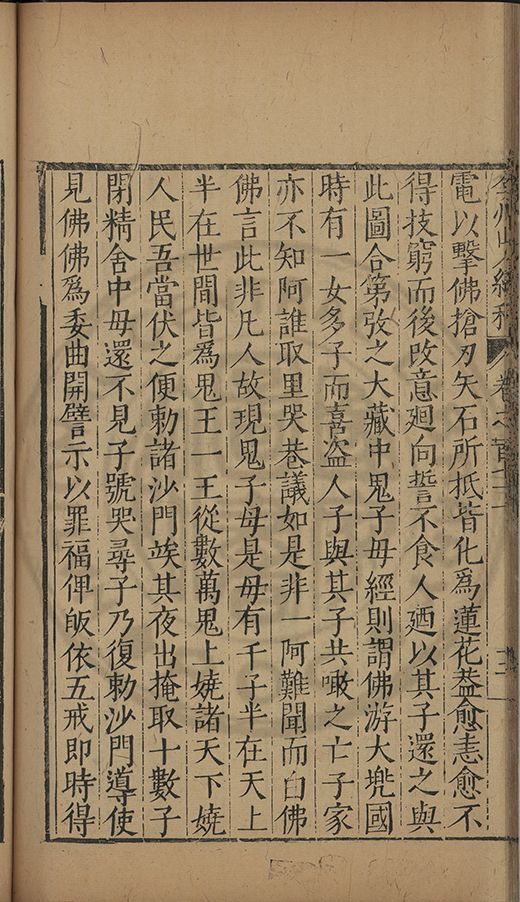 電以擊佛搶刃矢石所抵皆化為蓮花葢愈恚愈不
得技窮而後改意廻向誓不食人廼以其子還之與
此圖合第攷之大藏中鬼子毋經則謂佛游大兠國
時有一女多子而喜盜人子與其子共噉之亡子家
亦不知阿誰取里哭巷議如是非一阿難聞而白佛
佛言此非凡人故現鬼子毋是毋有千子半在天上
半在世間皆為鬼王一王從數萬鬼上嬈諸天下嬈
人民吾當伏之便勅諸沙門竢其夜出掩取十數子
閉精舍中毋還不見子號哭尋子乃復勅沙門導使
見佛佛為委曲開譬示以罪福俾皈依五戒即時得